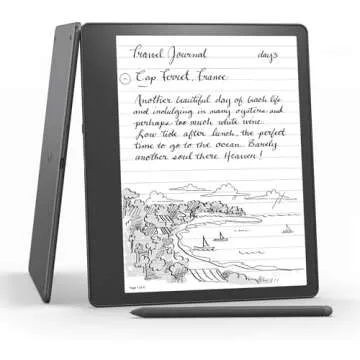 Travel Journal day 3
Cap Ferret, France
Another beautiful day of beach life
and indulging in many oysters and
perhaps too much white wine.
Low tide after lunch, the perfect
time to go to the ocean. Barely
another soul there Heaven!
Page 1 of 6